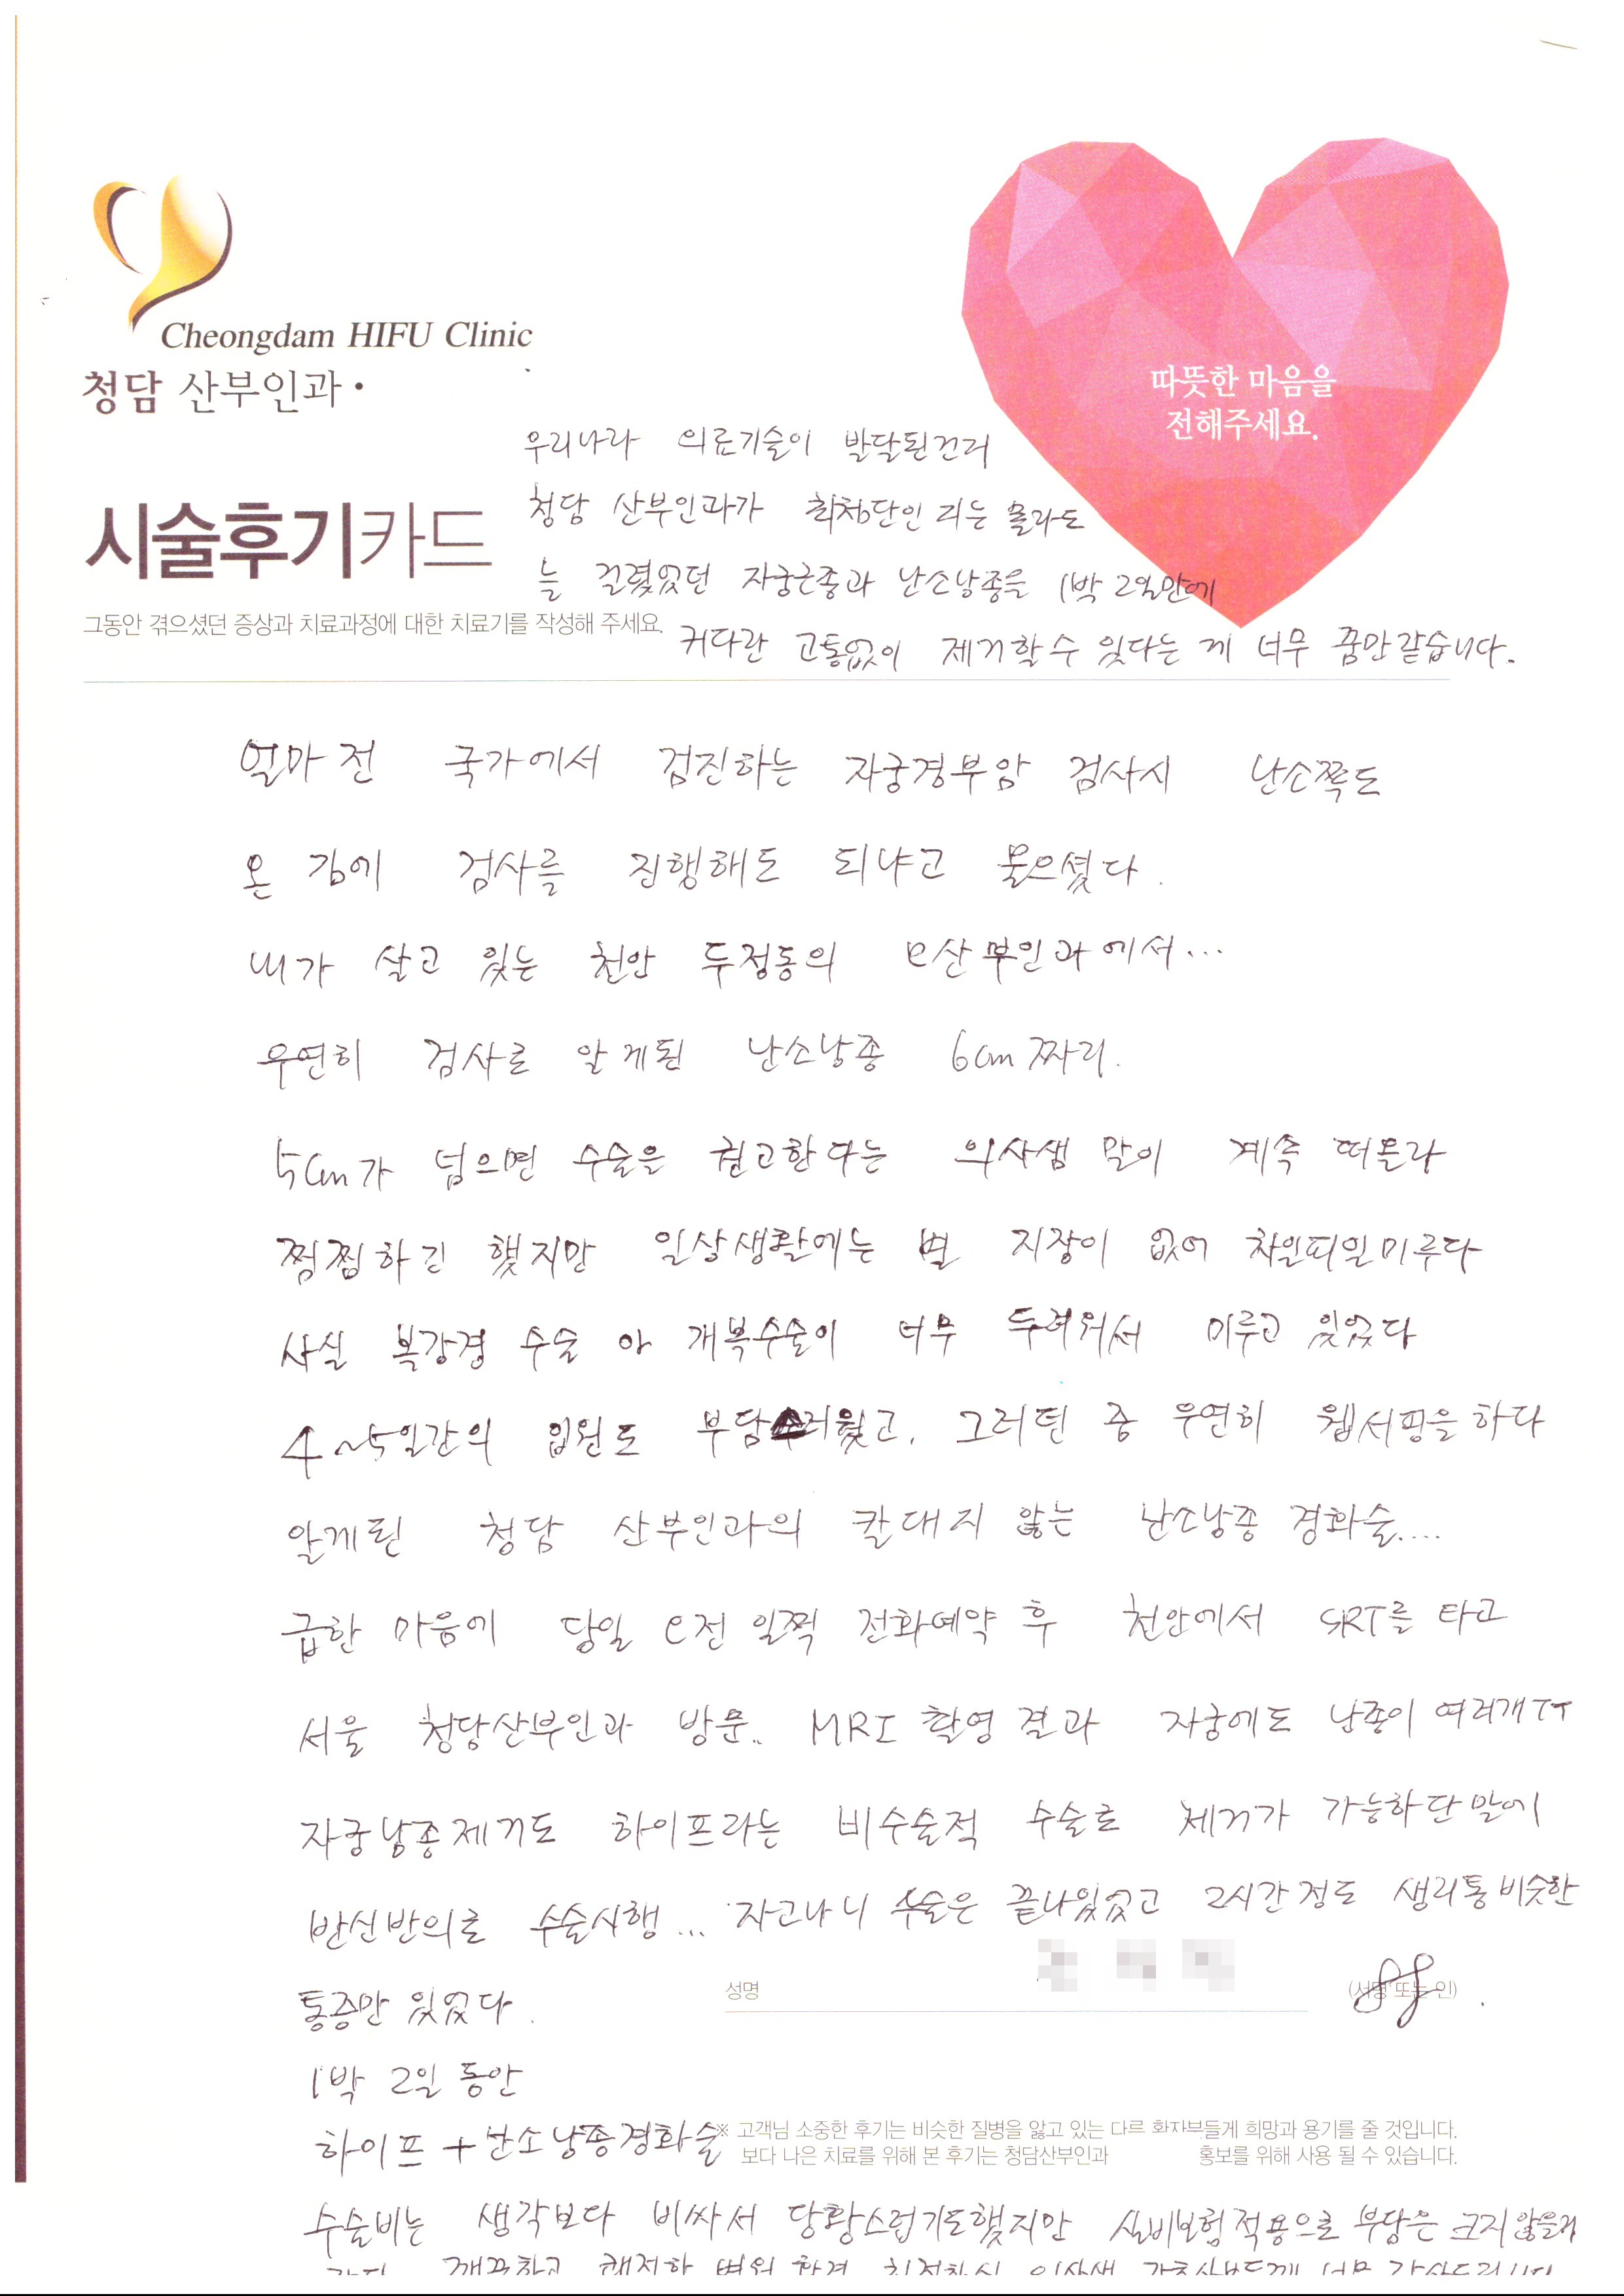 Cheongdam HIFU Clinic
청담 산부인과
따뜻한 마음을
전해주세요.
시술후기카드
그동안 겪으셨던 증상과 치료과정에 대한 치료기를 작성해 주세요.
우리나라 의료기술이 발달된건지
청담 산부인과가 최첨단인 지는 몰라도
늘 걸렸었던 자궁근종과 난소낭종을 1박 2일만에
커다란 고통없이 제거할수 있다는 게 너무 꿈만같습니다.
얼마전 국가에서 검진하는 자궁경부암 검사시 난소쪽도
온 김에 검사를 진행해도 되냐고 물으셨다.
내가 살고 있는 천안 두정동의 e산부인과에서...
우연히 검사로 알게된 난소낭종 6cm짜리.
5cm가 넘으면 수술을 권고한다는 의사샘 말이 계속 떠올라
찜찜하긴 했지만 일상생활에는 별 지장이 없어 차일피일미루다
사실 복강경 수술 아 개복수술이 너무 두려워서 미루고 있었다
4~5일간의 입원도 부담스러웠고. 그러던 중 우연히 웹서핑을 하다
알게된 청담 산부인과의 칼대지 않는 난소낭종 경화술....
급한 마음에 당일 오전 일찍 전화예약 후 천안에서 SRT를 타고
서울 청담산부인과 방문.. MRI 촬영결과 자궁에도 낭종이 여러개 TT
자궁낭종제거도 하이프라는 비수술적 수술로 제거가 가능하단말에
반신반의로 수술시행... 자고나니 수술은 끝나있었고 2시간정도 생리통비슷한
통증만 있었다.
성명
(서명 또는 인)
1박 2일 동안
하이프 + 난소낭종경화술
※ 고객님 소중한 후기는 비슷한 질병을 앓고 있는 다른 환자분들게 희망과 용기를 줄 것입니다.
보다 나은 치료를 위해 본 후기는 청담산부인과 홍보를 위해 사용 될 수 있습니다.
수술비는 생각보다 비싸서 당황스럽기도했지만 실비보험적용으로 부담은 크지않을거
깨끗하고 쾌적한 병원 환경 친절하신 의사샘 간호사분들께 너무 감사드립니다